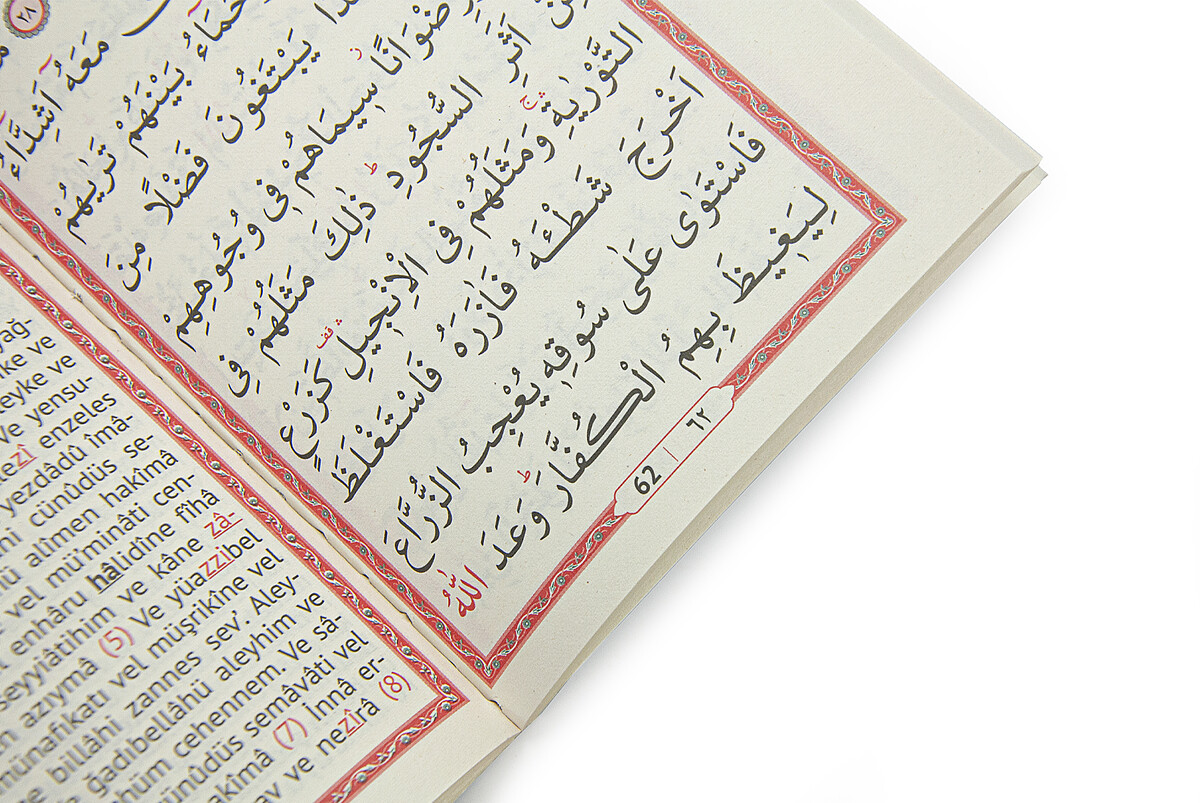 ٢٨
مَعَهُٓ اَشِدَّٓاءُ
بَيْنَهُمْ تَرٰيهُمْ
يَبْتَغُونَ فَضْلًا مِنَ
سٖيمَاهُمْ فٖى وُجُوهِهِمْ
اَثَرِ السُّجُودِۜ ذٰلِكَ مَثَلُهُمْ فِى
التَّوْرٰيةِۚ وَمَثَلُهُمْ فِى الْاِنْجٖيلِ كَزَرْعٍ
اَخْرَجَ شَطْـَٔهُ فَاٰزَرَهُ فَاسْتَغْلَظَ
فَاسْتَوٰى عَلٰى سُوقِهٖ يُعْجِبُ الزُّرَّاعَ
لِيَغٖيظَ بِهِمُ الْكُفَّارَۜ وَعَدَ اللّٰهُ
62 | ٦٢
yağ-
ke ve
leyke ve
ve yensu-
enzeles
yezdâdû îmâ-
cünûdüs se-
alîmen hakîmâ
vel mü'minâti cen-
enhâru hâlidîne fîhâ
seyyiâtihim ve kâne zâ-
azıymâ (5) Ve yüazzibel
münafıkatı vel müşrikîne vel
billâhi zannes sev'. Aley-
ğadıbellâhü aleyhim ve
hüm cehennem. Ve sâ-
ünûdüs semâvâti vel
akîmâ (7) İnnâ er-
ve nezîrâ (8)